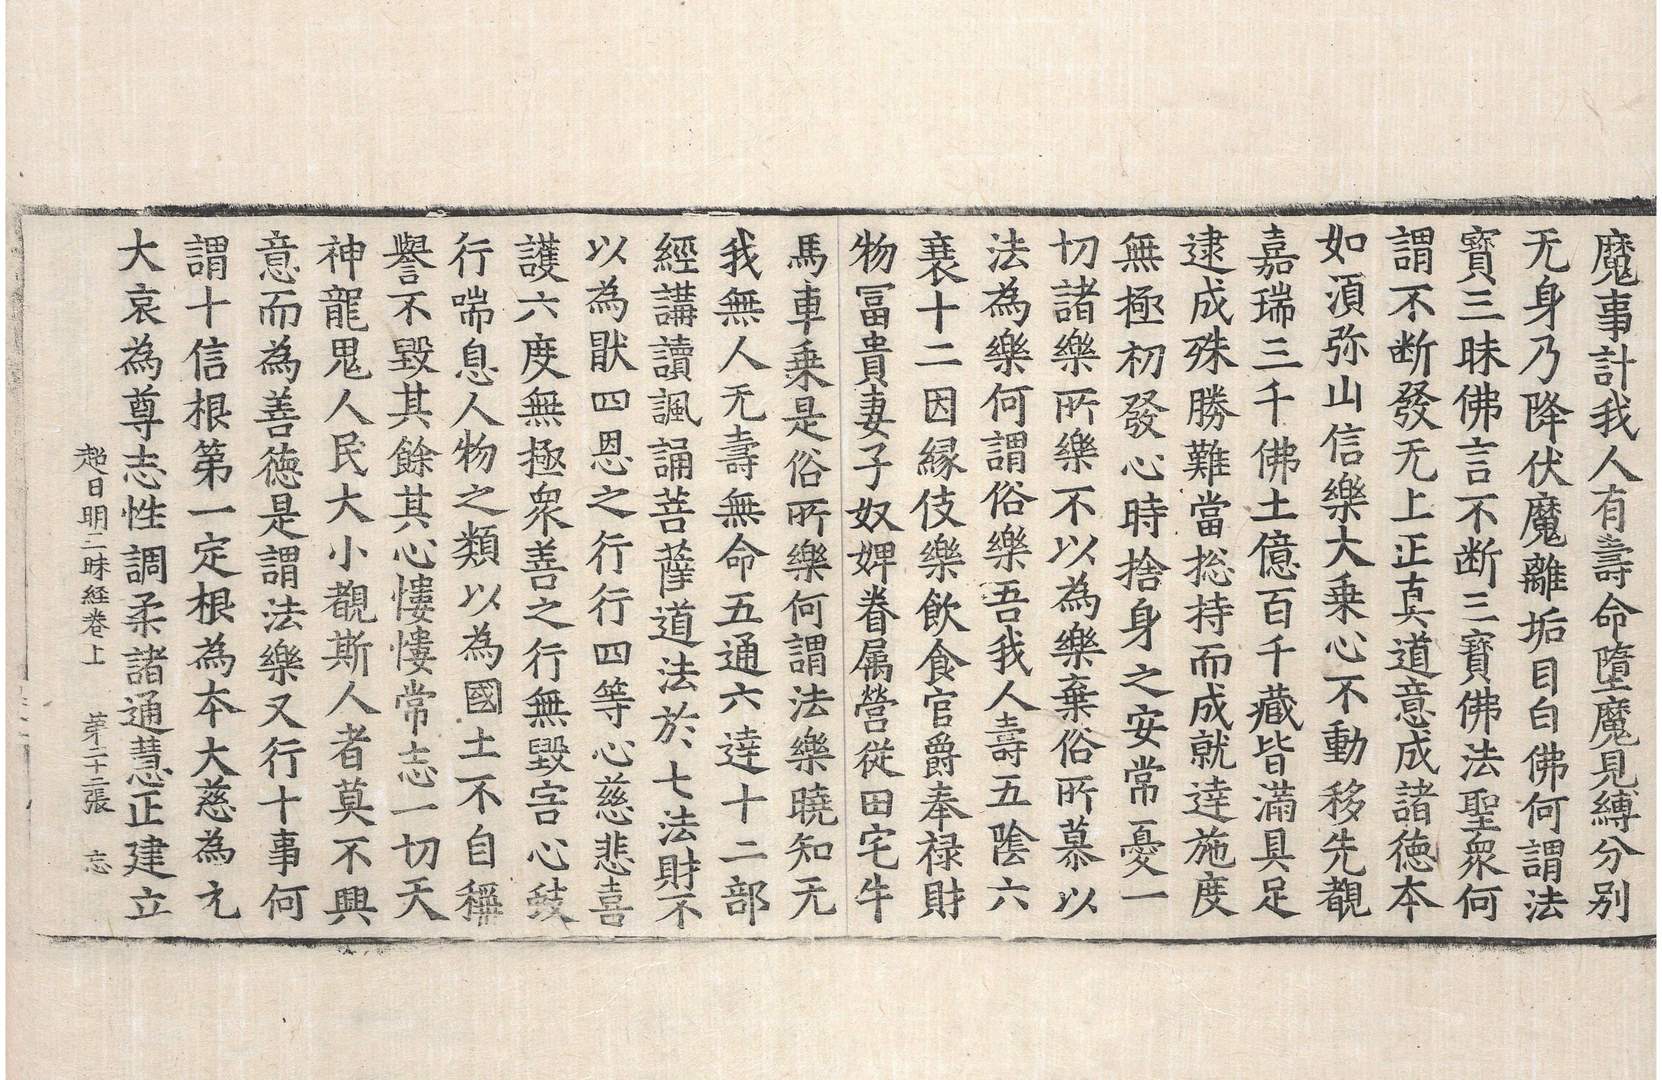 魔事計我人有壽命墮魔見縛分别
无身乃降伏魔離垢目白佛何謂法
寳三昧佛言不断三寳佛法聖衆何
謂不断發无上正真道意成諸徳本
如湏弥山信樂大乗心不動移先覩
嘉瑞三千佛土億百千藏皆滿具足
逮成殊勝難當㧾持而成就逹施度
無極初發心時捨身之安常憂一
切諸樂所樂不以為樂棄俗所慕以
法為樂何謂俗樂吾我人壽五陰六
衰十二因縁伎樂飲食官爵奉禄財
物冨貴妻子奴婢眷属營從田宅牛
馬車乗是俗所樂何謂法樂曉知无
我無人无壽無命五通六逹十二部
經講讀諷誦菩薩道法於七法財不
以為猒四恩之行行四等心慈悲喜
護六度無極衆善之行無毀害心蚑
行喘息人物之類以為國土不自稱
譽不毀其餘其心慺慺常志一切天
神龍鬼人民大小覩斯人者莫不興
意而為善徳是謂法樂又行十事何
謂十信根第一定根為本大慈為元
大哀為尊志性調柔諸通慧正建立
超日明三昧経卷上　苐二十二張　忘